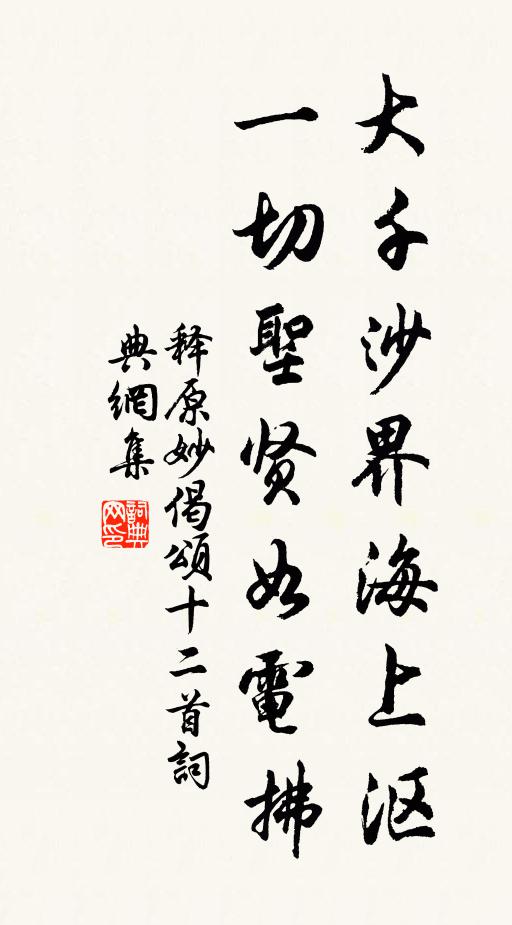 大千沙界海上沤
一切聖贤如電拂
释原妙偈頌十二首詞
典網集
詞典
网印